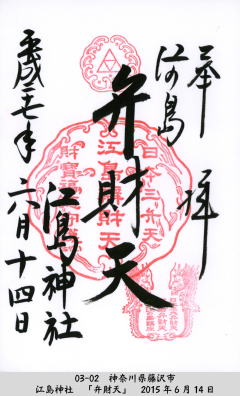 奉拝
江の島
弁財天
江島神社
平成二七年六月十四日
日本三弁天
江島弁財天
03-02 神奈川県藤沢市
江島神社 「弁財天」 2015年6月14日